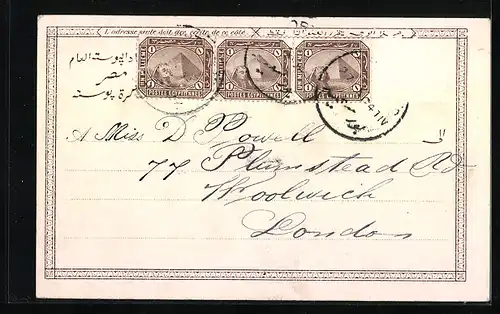 L'adresse seule doit être de ce côté
ادارة البوستة العام
مصر
تذكرة بوستة
1 1 1 1 1 1
POSTES EGYPTIENNES POSTES EGYPTIENNES POSTES EGYPTIENNES
الى
A Miss D Powell
77 Plumstead Rd
Woolwich
London